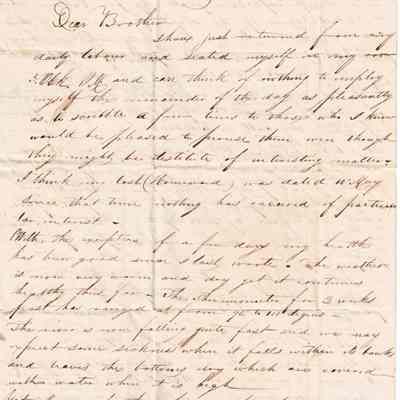 Dear Brother
I have just returned from my
daily labour and seated myself in my room
and can think of nothing to employ
myself the remainder of the day as pleasantly
as to scribble a few lines to those who I know
would be pleased to peruse them even though
they might be destitute of interesting matter -
I think my last (Homeward) was dated May
since that time nothing has occured of particular
interest -
With the exception of a few days my health
has been good since I last wrote. The weather
is now very warm and dry yet it continues
healthy thus far - The Thermometer for 3 weeks
past has ranged from
The river is now falling quite fast and we may
expect some sickness when it falls within its banks
and leaves the bottoms dry which are covered
with water when it is high